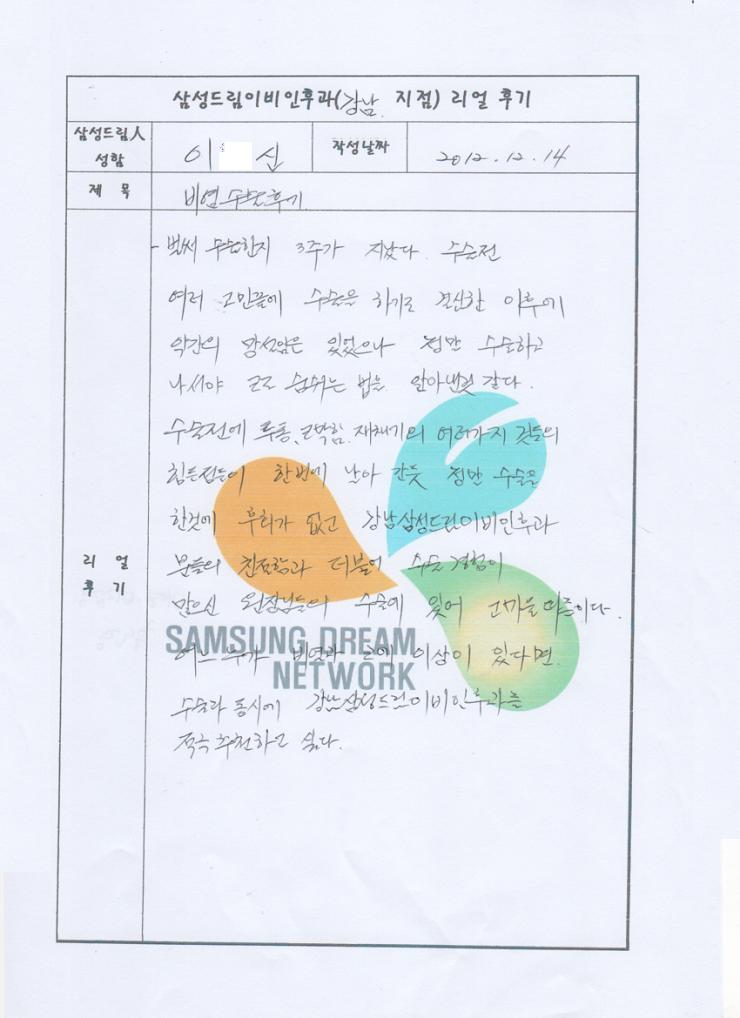 삼성드림이비인후과(강남 지점) 리얼 후기
삼성드림人 성함
이 신
작성날짜
2012.12.14
제 목
비염 수술후기
리 얼 후 기
벌써 수술한지 3주가 지났다. 수술전
여러 고민끝에 수술을 하기로 결심한 이후에
약간의 망설암은 있었으나 정말 수술하고
나서야 코로 숨쉬는 법을 알아낸것 같다.
수술전에 두통, 코막힘, 재채기의 여러가지 것들의
힘든점들이 한번에 날아 간듯 정말 수술을
한것에 후회가 없고 강남삼성드림이비인후과
분들의 친절함과 더불어 수술 경험이
많으신 원장님들의 수술에 있어 고마울따름이다.
어느 누가 비염과 코에 이상이 있다면
수술과 동시에 강남삼성드림이비인후과를
적극 추천하고 싶다.
SAMSUNG DREAM
NETWORK